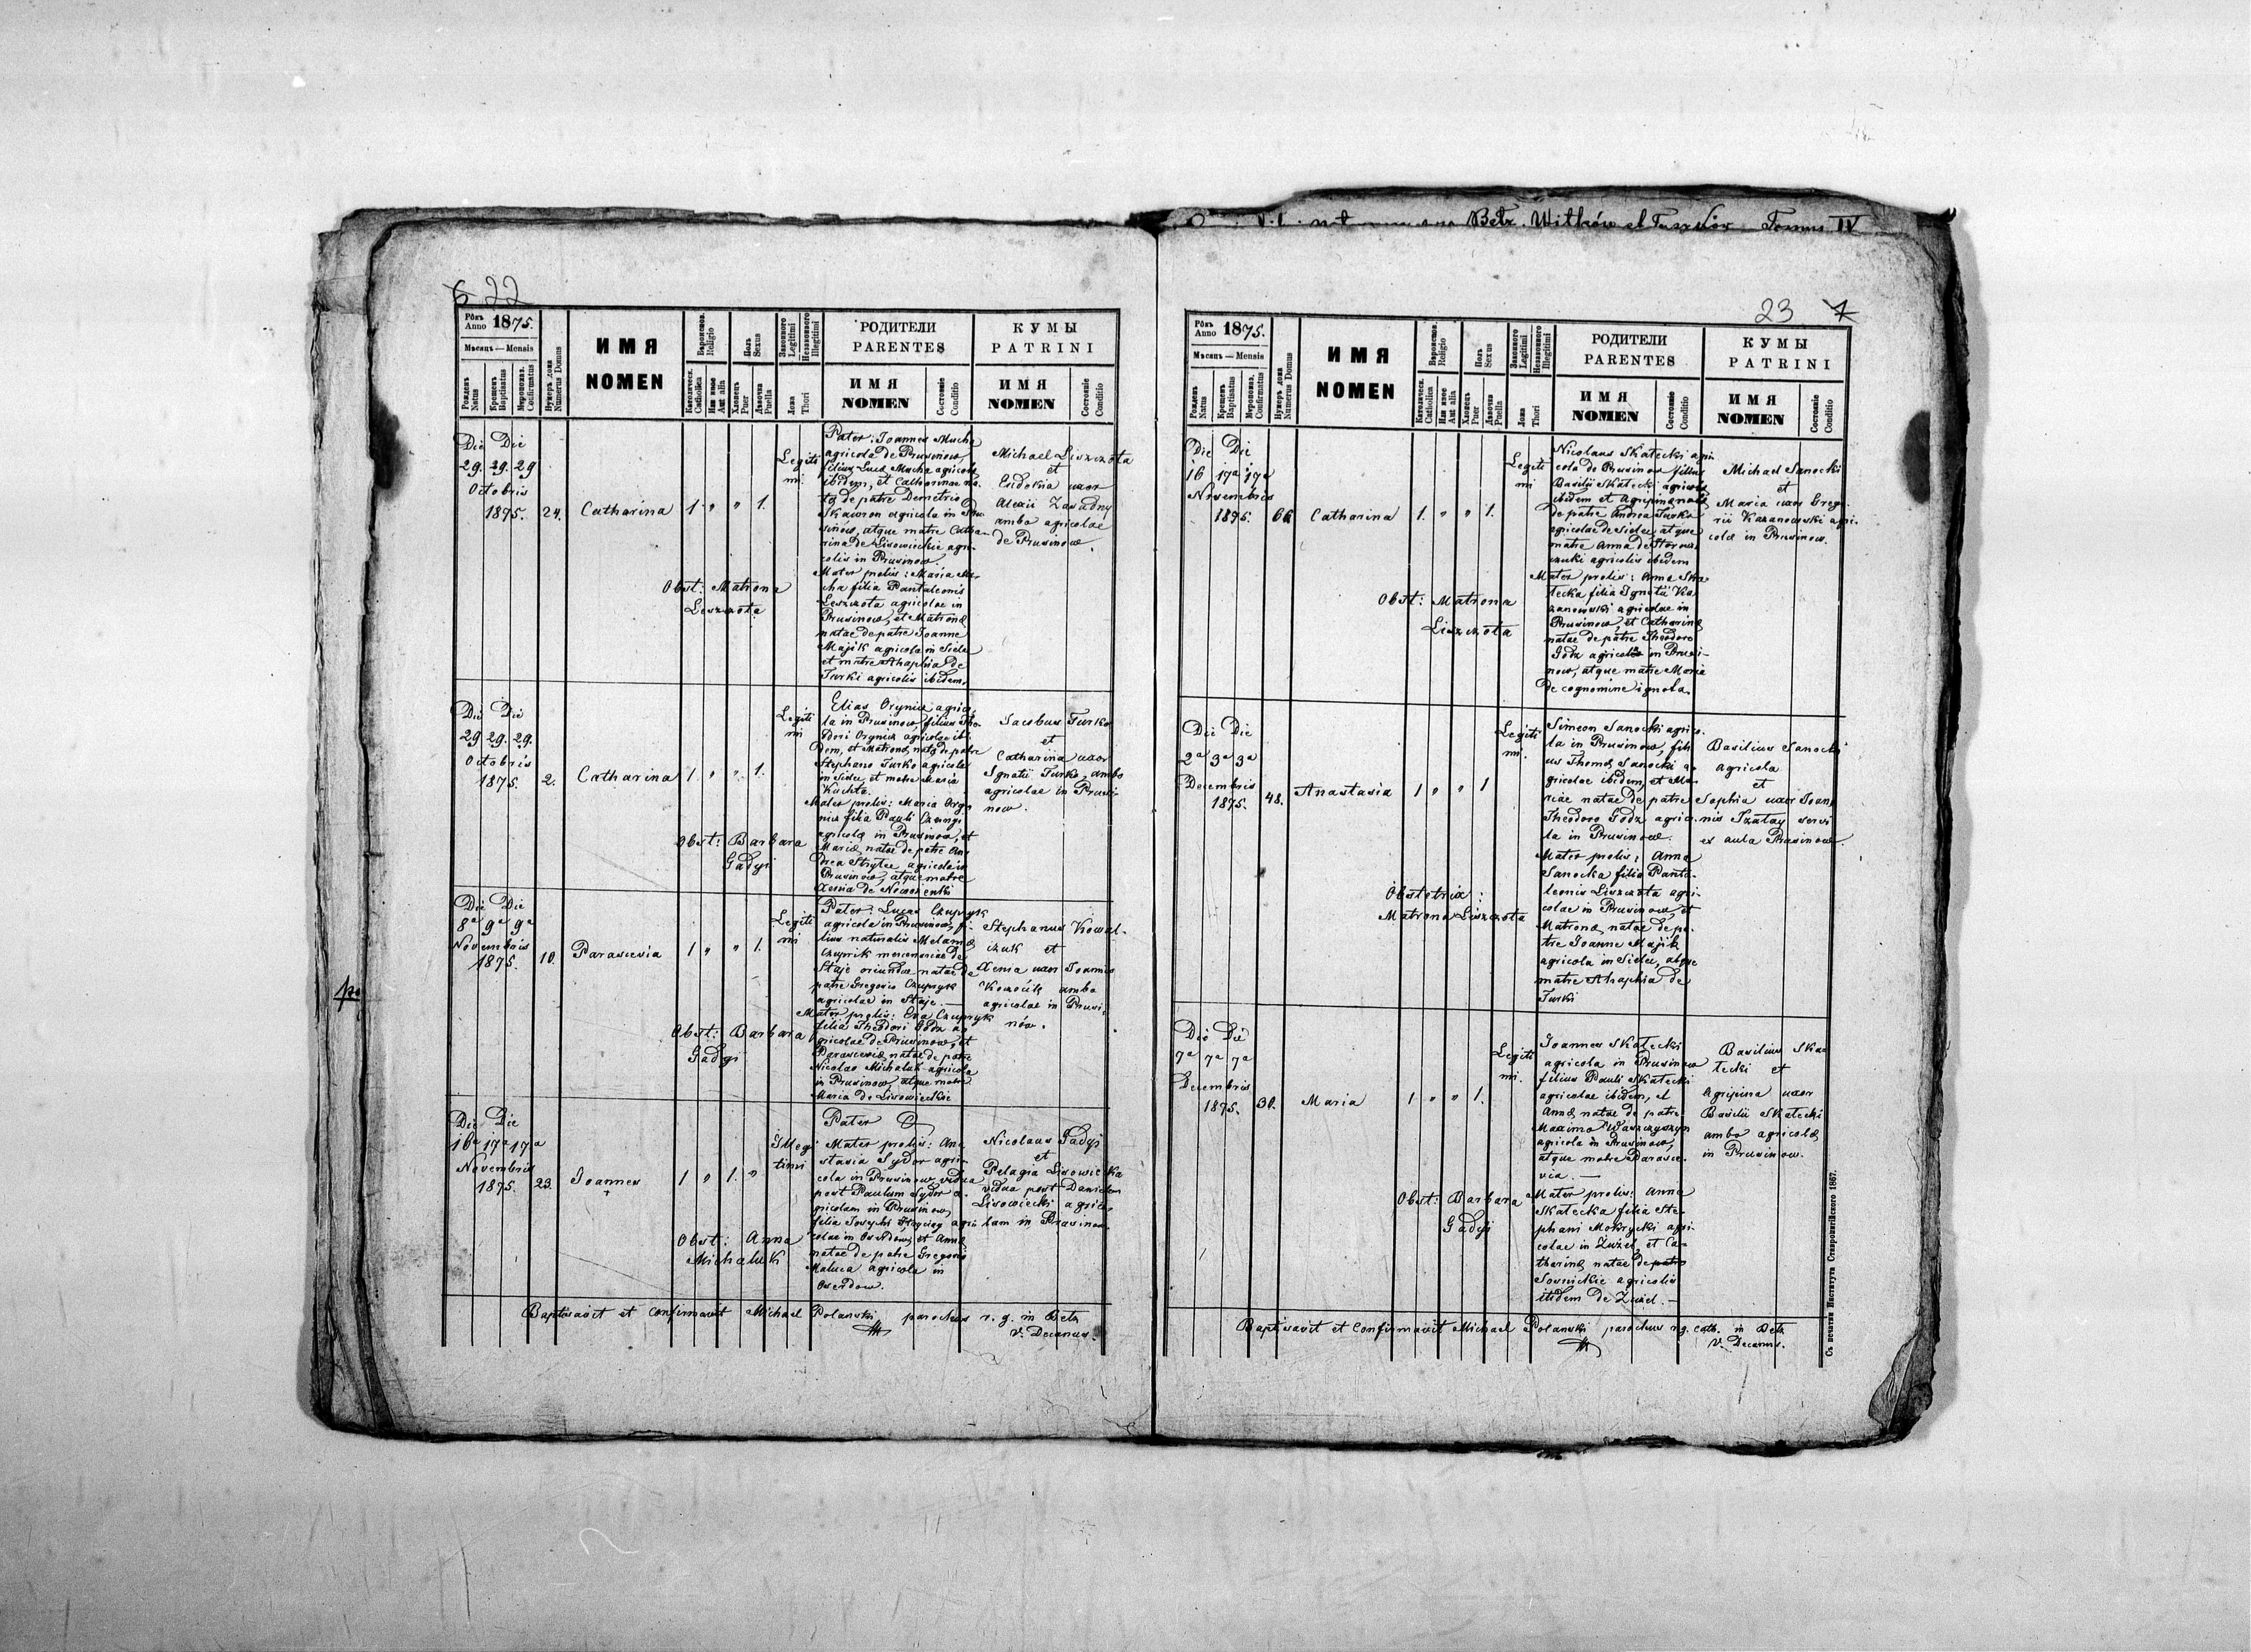 Belz. Witków et Tom IV
6 22
Рôкъ
Anno 1875.
Мѣсяць — Mensis
Рожденъ
Natus
Крещенъ
Baptisatus
Миропомаз.
Confirmatus
Нумеръ дома
Numerus Domus
ИМЯ
NOMEN
Вѣроиспов.
Religio
Католическ.
Catholica
Или иное
Aut alia
Полъ
Sexus
Хлопецъ
Puer
Дѣвочка
Puella
Законного
Legitimi
Незаконного
Illegitimi
Ложа
Thori
РОДИТЕЛИ
PARENTES
ИМЯ
NOMEN
Состояніе
Conditio
КУМЫ
PATRINI
ИМЯ
NOMEN
Состояніе
Conditio
Die Die
29. 29. 29
Octobris
1875. 24. Catharina 1 " " 1.
Legiti
mi.
Pater: Joannes Mucha
agricola de Prusinow,
filius Lucæ Mucha agricolæ
ibidem, et Catharinae na-
tæ de patre Demetrio
Skawron agricola in Pru
sinów, atque matre Catha-
rina de Lisowieckie agri-
colis in Prusinow.
Mater prolis: Maria Mu-
cha filia Pantaleonis
Leszczota agricolae in
Prusinow, et Matronæ
natae de patre Joanne
Majik agricola in Sielec
et matre Ahaphia de
Turki agricolis ibidem.
Michael Liszczota
et
Eudokia uxor
Alexii Zawadny
ambo agricolae
de Prusinow.
Obst: Matrona
Leszczota
Die Die
29 29. 29.
Octobris
1875. 2. Catharina 1 " " 1.
Legiti
mi
Elias Orynicz agrico-
la in Prusinow, filius Theo-
dori Orynicz agricolae ibi-
dem, et Matronæ natæ de patre
Stephano Turko agricola
in Sielec et matre Maria
Kuchta.
Mater prolis: Maria Ory-
nicz filia Pauli
agricolæ in Prusinow, et
Mariæ natae de patre An-
drea Strytec agricola in
Prusinow, atque matre
Xenia de
Jacobus Turko
et
Catharina uxor
Ignatii Turko, ambo
agricolae in Prusi-
now.
Obst: Barbara
Gadyi
Die Die
8ª 9ª 9ª
Novembris
1875. 10. Parascevia 1 " " 1.
Legiti
mi
Pater: Lucas Czupryk
agricola in Prusinow, fi-
lius naturalis Melaniæ
Czuprik mercenariae de
Staje oriundae natae de
patre Gregorio Czupryk
agricolae in Staje. —
Mater prolis: Eva Czupryk
filia Theodori Godz a-
gricolae de Prusinow, et
Parasceviæ natae de patre
Nicolao Michaluk agricola
in Prusinow, atque matre
Maria de Lisowieckie
Stephanus Kowal-
czuk et
Xenia uxor Joannis
Koczocik ambo
agricolae in Prusi-
nów.
Obst: Barbara
Gadyi
Die Die
16ª 17ª 17ª
Novembris
1875. 23. Joannes 1 " 1. "
+
Illegi
timi
Pater
Mater prolis: Ana
stasia Sydor agri-
cola in Prusinow vidua
post Paulum Sydor a-
gricolam in Prusinow,
filia Josyphi agri-
colae in Oserdow, et Annæ
natae de patre Gregorio
Maluca agricola in
Oserdow.
Nicolaus Gadyi
et
Pelagia Lisowiecka
vidua post Danielem
Lisowiecki agrico-
lam in Prusinow
Obst: Anna
Michaluk
Baptisavit et confirmavit Michael Polanski parochus r. g. in Belz
V. Decanus.
23 7
Рôкъ
Anno 1875.
Мѣсяць — Mensis
Рожденъ
Natus
Крещенъ
Baptisatus
Миропомаз.
Confirmatus
Нумеръ дома
Numerus Domus
ИМЯ
NOMEN
Вѣроиспов.
Religio
Католическ.
Catholica
Или иное
Aut alia
Полъ
Sexus
Хлопецъ
Puer
Дѣвочка
Puella
Законного
Legitimi
Незаконного
Illegitimi
Ложа
Thori
РОДИТЕЛИ
PARENTES
ИМЯ
NOMEN
Состояніе
Conditio
КУМЫ
PATRINI
ИМЯ
NOMEN
Состояніе
Conditio
Die Die
16 17ª 17ª
Novembris
1875. Catharina 1. " " 1.
Legiti
mi
Nicolaus Skatecki agri
cola de Prusinow filius
Basilii Skatecki agricolæ
ibidem et Agripinæ natæ
de patre Andrea Turko
agricolae de Sielec atque
matre Anna de
agricolis ibidem
Mater prolis: Anna Ska-
tecka filia Ignatii Ka-
zanowski agricolae in
Prusinow, et Catharinæ
natae de patre Theodoro
Godz agricola in Prusi-
now, atque matre Maria
de cognomine ignota.
Michael Sanocki
et
Maria uxor Grego-
rii Kazanowski agri-
colæ in Prusinow.
Obst: Matrona
Liszczota
Die Die
2ª 3ª 3ª
Decembris
1875. 48. Anastasia 1 " " 1
Legiti
mi.
Simeon Sanocki agrico-
la in Prusinow, fili
us Thomæ Sanocki a-
gricolae ibidem, et Ma-
riae natae de patre
Theodoro Godz agrico-
la in Prusinow.
Mater prolis: Anna
Sanocka filia Panta-
leonis Liszczota agri-
colae in Prusinow, et
Matronæ natae de pa-
tre Joanne Majik
agricola in Sielec, atque
matre Ahaphia de
Turki
Basilius Sanocki
agricola
et
Sophia uxor Joan-
nis servi
ex aula Prusinow.
Obstetrix:
Matrona Liszczota
Die Die
7ª 7ª 7ª
Decembris
1875. 30. Maria 1 " " 1.
Legiti
mi.
Joannes Skatecki
agricola in Prusinow
filius Pauli Skatecki
agricolae ibidem, et
Annæ natae de patre
Maximo Waszczyszyn
agricola in Prusinow,
atque matre Parasce-
via. —
Mater prolis: Anna
Skatecka filia Ste-
phani Mokrycki agri-
colae in Żużel, et Ca-
tharinæ natae de patre
Sosnickie agricolis
itidem de Żużel. —
Basilius Ska-
tecki et
Agripina uxor
Basilii Skatecki
ambo agricolæ
in Prusinow.
Obst: Barbara
Gadyi
Baptisavit et confirmavit Michael Polanski parochus r. g. cath. in Belz
V. Decanus.
Съ печатни Института Ставропигійского 1867.